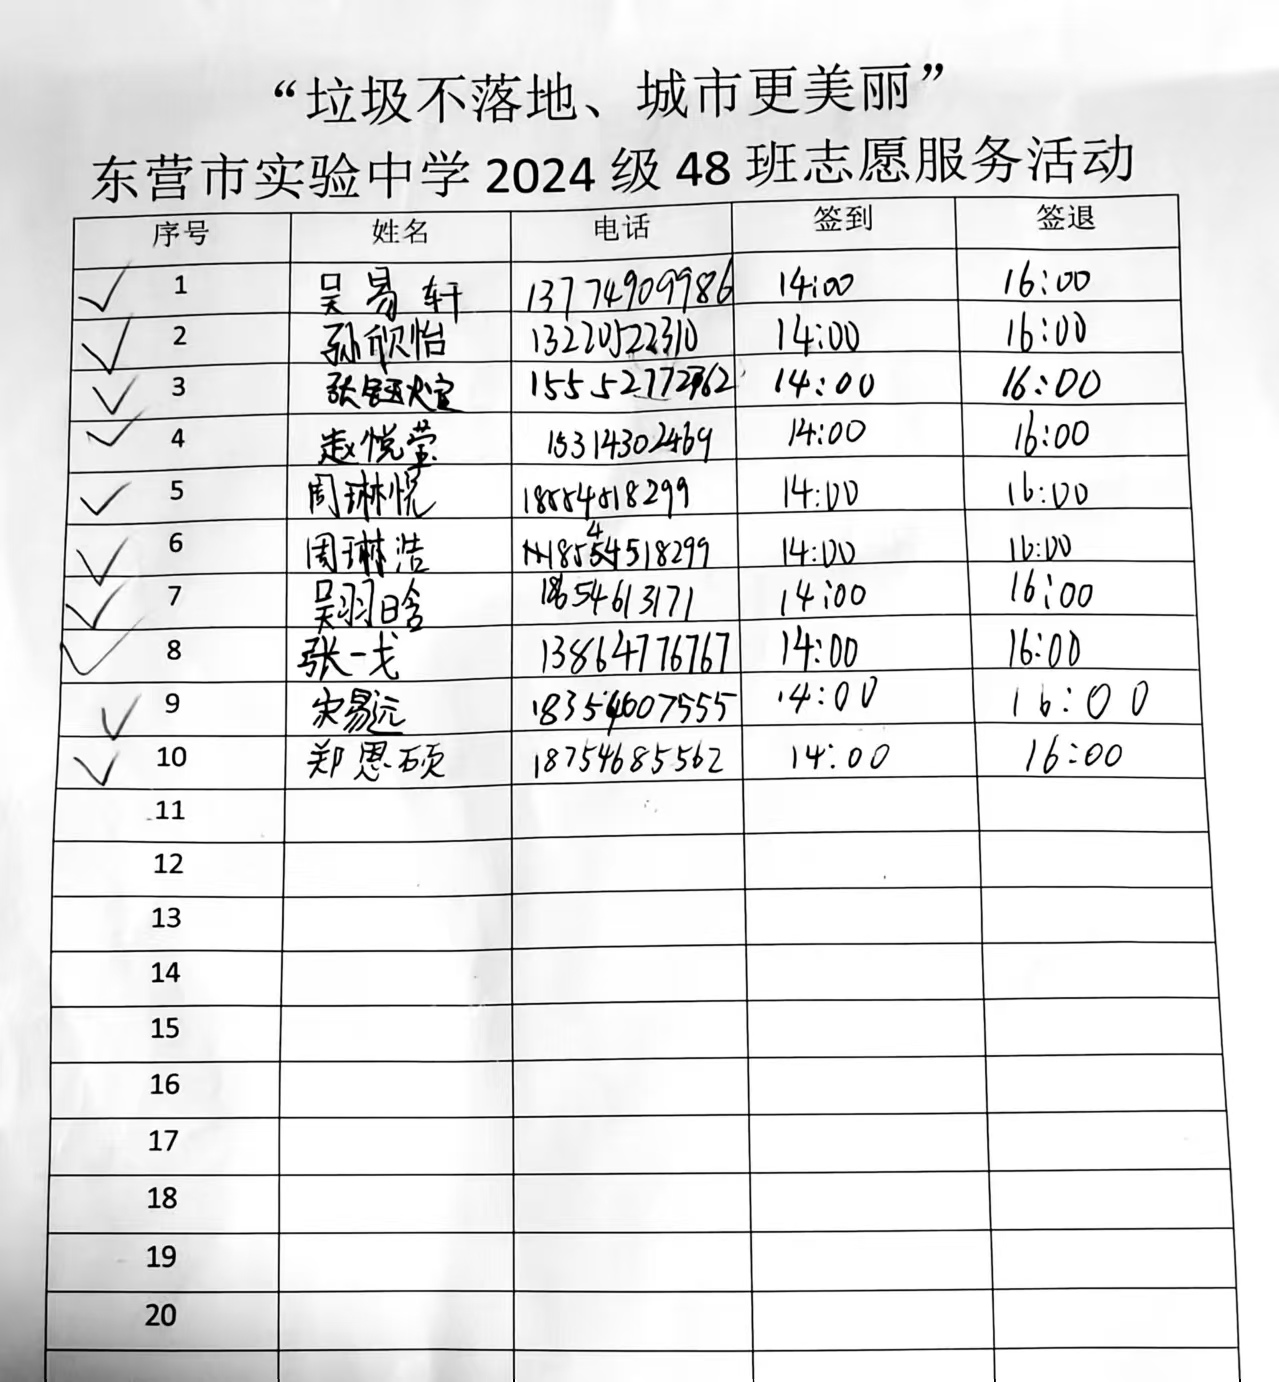 “垃圾不落地、城市更美丽”
东营市实验中学 2024 级 48 班志愿服务活动
序号 姓名 电话 签到 签退
1 吴易轩 13774909986 14:00 16:00
2 孙欣怡 13220522310 14:00 16:00
3 14:00 16:00
4 赵悦莹 15314302469 14:00 16:00
5 周琳悦 14:00 16:00
6 周琳浩 14:00 16:00
7 吴羽晗 18654613171 14:00 16:00
8 张一戈 13864776767 14:00 16:00
9 宋易远 18354607555 14:00 16:00
10 郑恩硕 18754685562 14:00 16:00
11
12
13
14
15
16
17
18
19
20